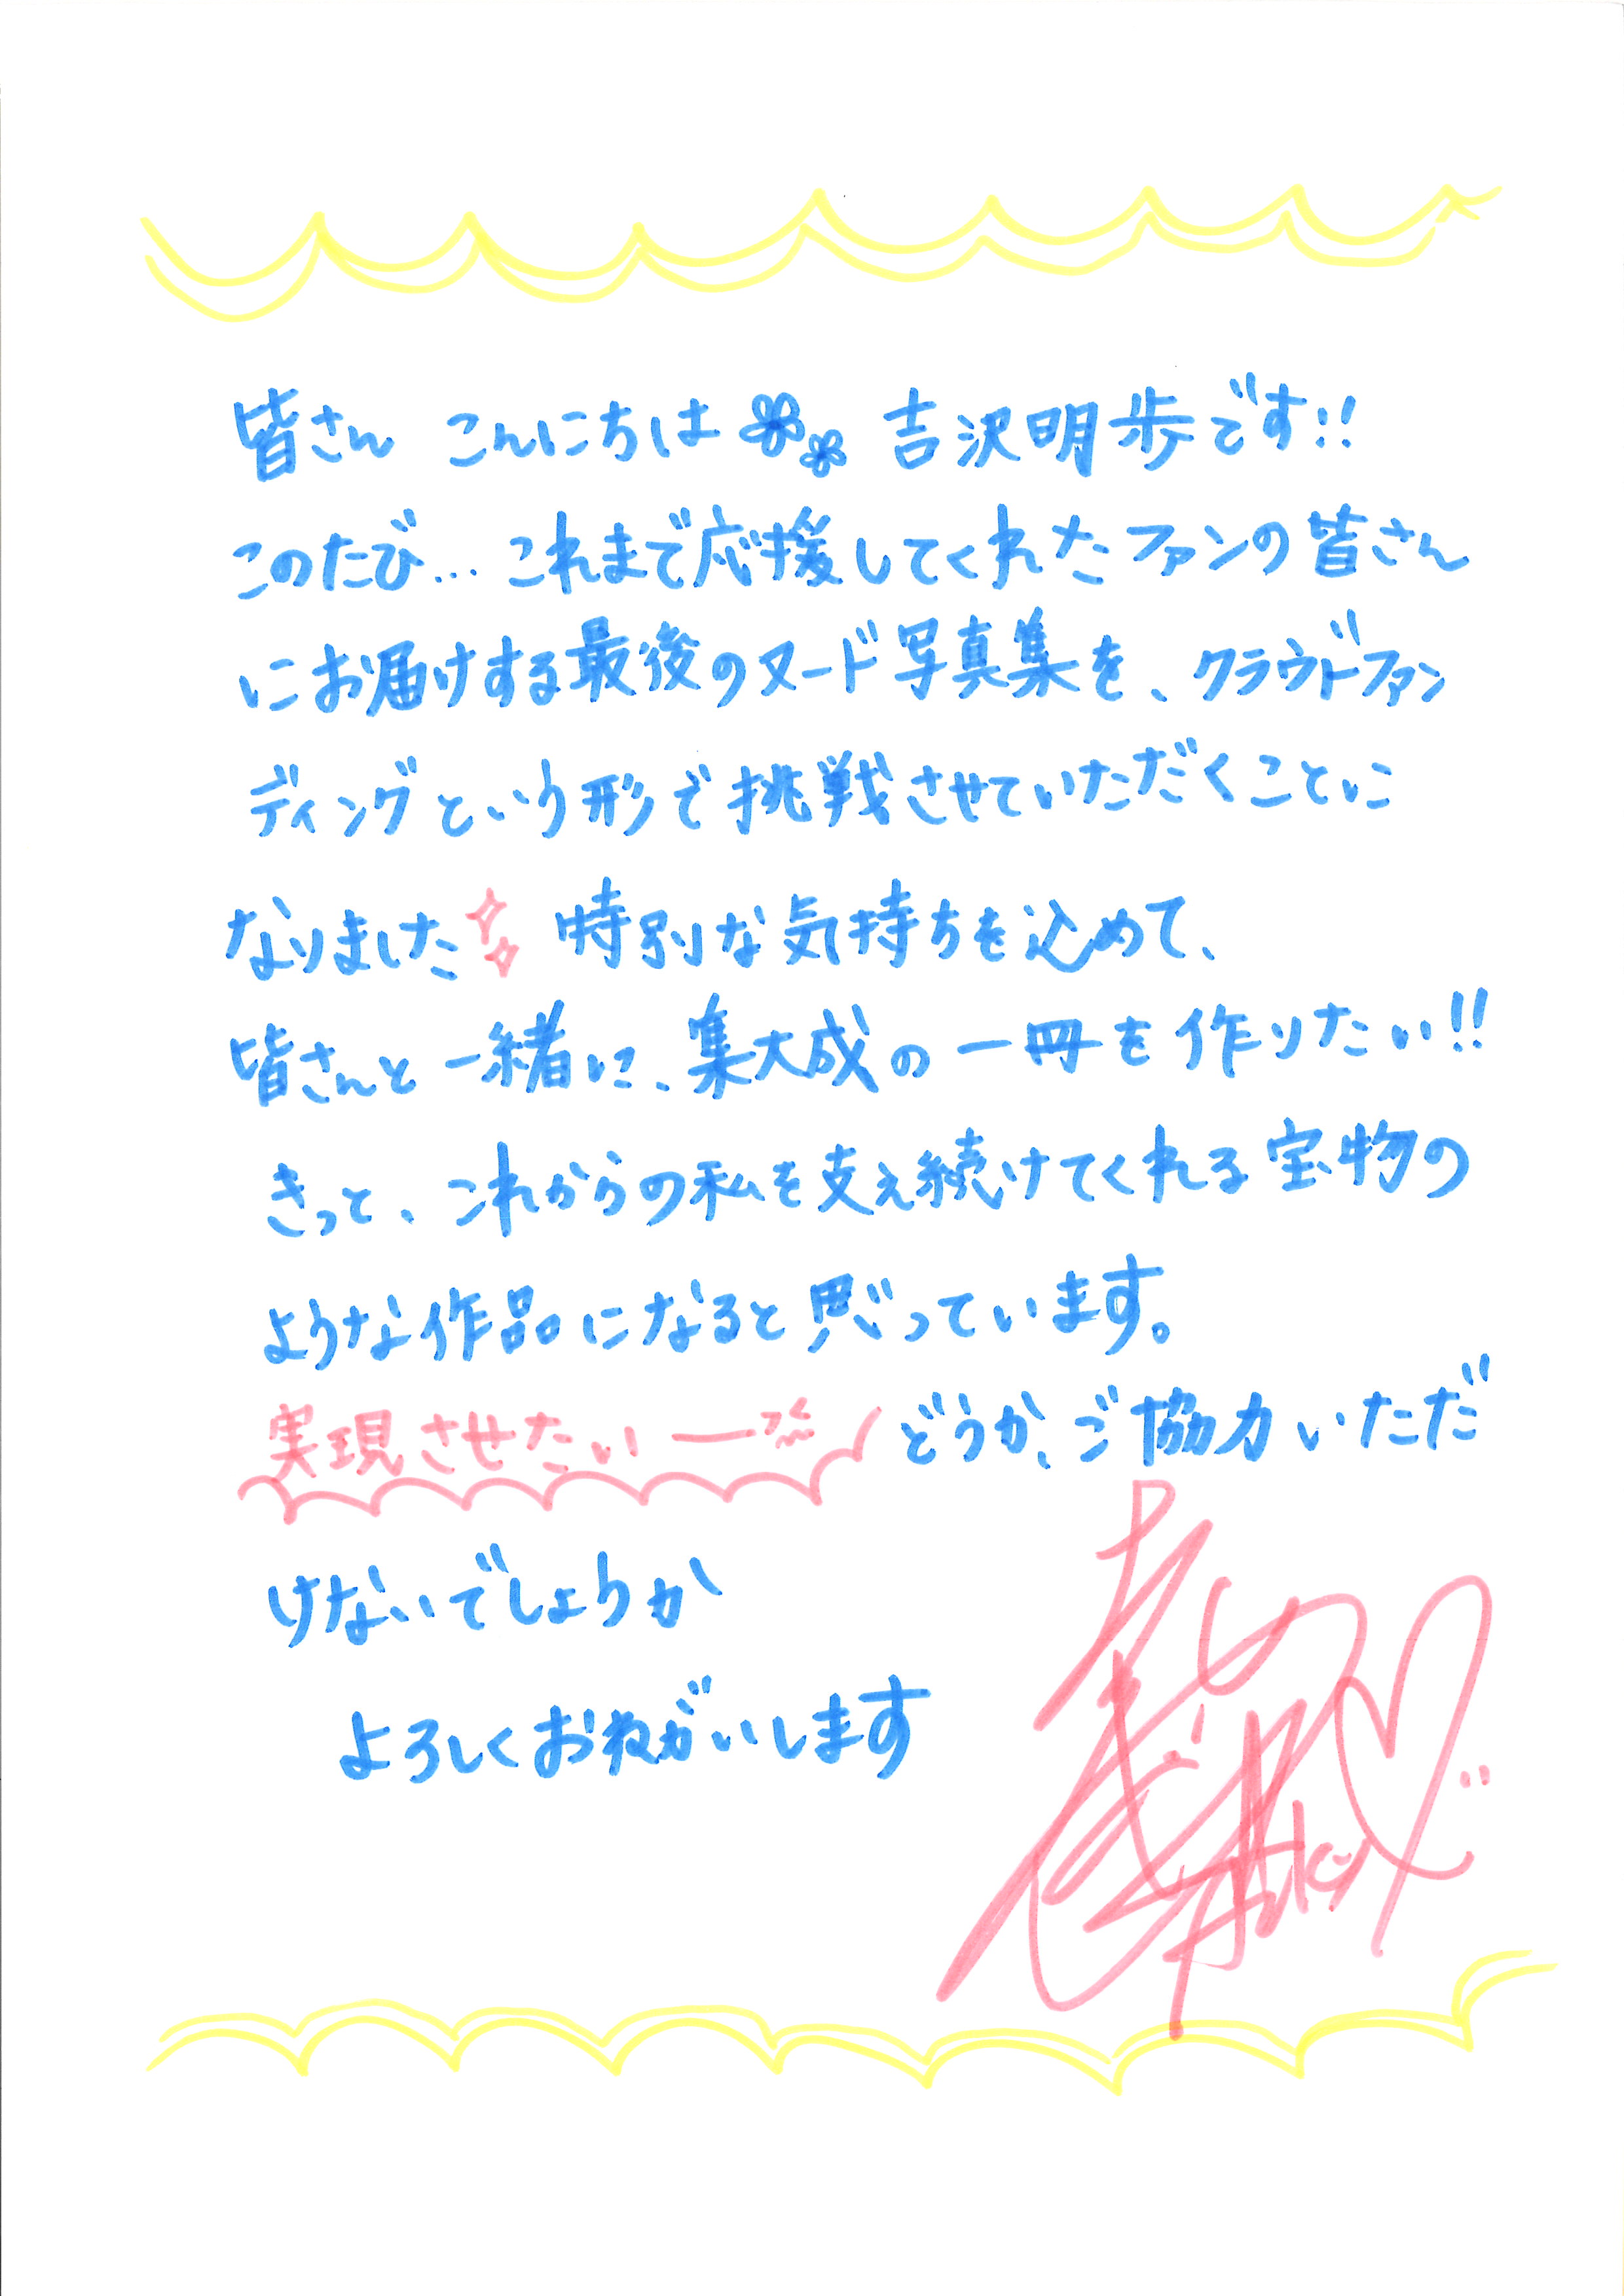 皆さん こんにちは 吉沢明歩です!!
このたび... これまで応援してくれたファンの皆さん
にお届けする最後のヌード写真集を、クラウドファン
ディングという形で挑戦させていただくことに
なりました 特別な気持ちを込めて、
皆さんと一緒に、集大成の一冊を作りたい!!
きっと、これからの私を支え続けてくれる宝物の
ような作品になると思っています。
実現させたいーっ どうか、ご協力いただ
けないでしょうか
よろしくおねがいします